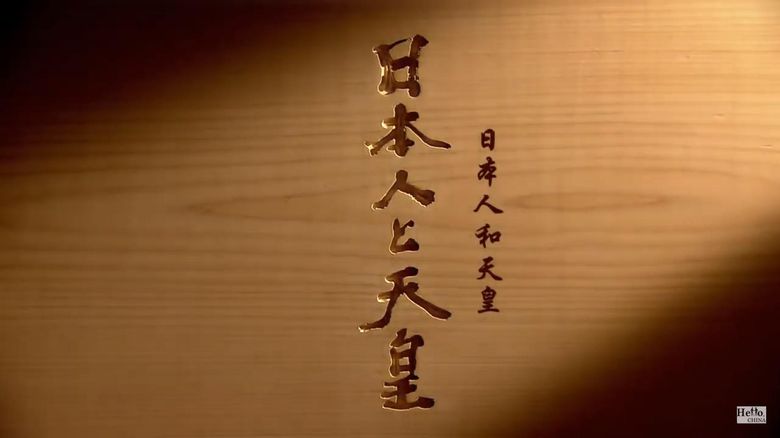 日本人と天皇
日本人和天皇
Hello,
CHINA